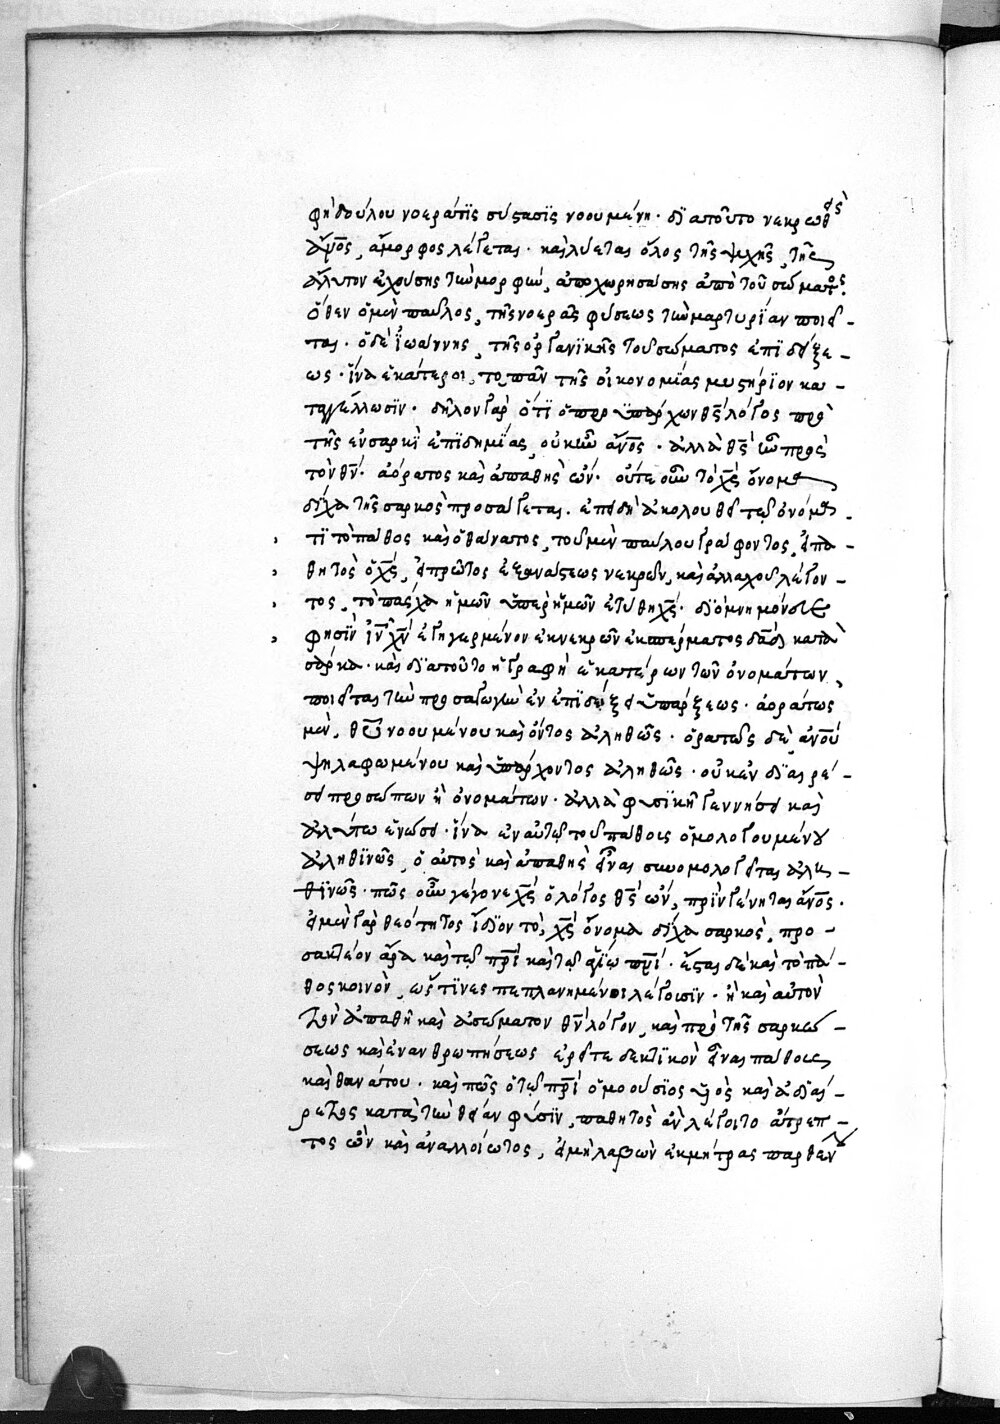 φὴ δούλου νοερά τἰς σύστασϊς νοουμένη · δϊατοῦτο νεκρωθεὶς
ἄν̅ο̅ς̅, ἄμορφος λέγεται · καὶ λύεται ὅλος τῆς ψυχῆς, τῆς
ἄλυτον ἐχούσης τὴν μορφὴν, ἀποχωρησάσης ἀπὸ τοῦ σώματος.
ὅθεν ὁ μὲν παῦλος, τῆς νοερᾶς φύσεως τὴν μαρτυρίαν ποιεῖ-
ται · ὁ δὲ ἰωάννης, τῆς ὀργανϊκῆς τοῦ σώματος ἐπϊδείξε-
ως · ἵνα ἑκάτεροι, τὸ πᾶν τῆς οἰκονομίας μυστήρϊον κα-
ταγγέλλωσϊν · δῆλον γὰρ ὅτϊ ὅπερ ὑπάρχων θ̅ς̅ λόγος πρὸ
τῆς ἐν σαρκὶ ἐπϊδημΐας, οὐκ ἦν ἄν̅ο̅ς̅ · ἀλλὰ θ̅ς̅ ἦν πρὸς
τὸν θ̅ν̅ · ἀόρατος καὶ ἀπαθὴς ὤν · οὔτε οὖν τὸ χ̅ς̅ ὄνομα
δΐχα τῆς σαρκὸς προσάγεται · ἐπειδὴ ἀκολουθεῖ τῷ ὀνόμα-
τϊ τὸ πάθος καὶ ὁ θάνατος, τοῦ μὲν παύλου γράφοντος, εἰ πα-
θητὸς ὁ χ̅ς̅, εἰ πρῶτος ἐξ ἀναστάσεως νεκρῶν, καὶ ἀλλαχοῦ λέγον-
τος, τὸ πάσχα ἡμῶν ὑπὲρ ἡμῶν ἐτύθη χ̅ς̅ · δϊὸ μνημόνευε
φησὶν ι̅ν̅ χ̅ν̅ ἐγηγερμένον ἐκ νεκρῶν ἐκ σπέρματος δ̅α̅δ̅ κατὰ
σάρκα · καὶ δϊατοῦτο ἡ γραφὴ ἑκατέρων τῶν ὀνομάτων,
ποιεῖται τὴν προσαγωγὴν ἐν ἐπϊδείξει ὑπάρξεως · ἀοράτως
μὲν, θ̅υ̅ νοουμένου καὶ ὄντος ἀληθῶς · ὁρατῶς δὲ ἀν̅ο̅υ̅
ψηλαφωμένου καὶ ὑπάρχοντος ἀληθῶς · οὐκ ἐν δϊαιρέ-
σει προσώπων ἢ ὀνομάτων · ἀλλὰ φυσϊκῇ γεννήσει καὶ
ἀλύτω ἑνώσει · ἵνα ἐν αὐτῷ τοῦ πάθους ὁμολογουμένου
ἀληθϊνῶς, ὁ αὐτὸς καὶ ἀπαθὴς εἶναι συνομολογεῖται ἀλη-
θϊνῶς · πῶς οὖν γέγονε χ̅ς̅ ὁ λόγος θ̅ς̅ ὢν, πρὶν γένηται ἄν̅ο̅ς̅ ·
εἰ μὲν γὰρ θεότητος ἴδϊον τὸ, χ̅ς̅ ὄνομα δΐχα σαρκὸς, προ-
σακτέον ἄρα καὶ τῷ π̅ρ̅ι̅ καὶ τῷ ἁγΐω π̅ν̅ι̅ · ἔσται δὲ καὶ τὸ πά-
θος κοινὸν, ὥς τϊνες πεπλανημένοι λέγουσϊν · ἢ καὶ αὐτὸν
τὸν ἀπαθῆ καὶ ἀσώματον θ̅ν̅ λόγον, καὶ πρὸ τῆς σαρκώ-
σεως καὶ ἐνανθρωπήσεως ἐρεῖτε δεκτϊκὸν εἶναι πάθους
καὶ θανάτου · καὶ πῶς ὁ τῷ π̅ρ̅ι̅ ὁμοούσϊος υἱὸς καὶ ἀδϊαί-
ρετος κατὰ τὴν θείαν φύσϊν, παθητὸς ἂν λέγοιτο ἄτρεπ-
τος ὢν καὶ ἀναλλοίωτος, εἰ μὴ λαβὼν ἐκ μήτρας παρθεν